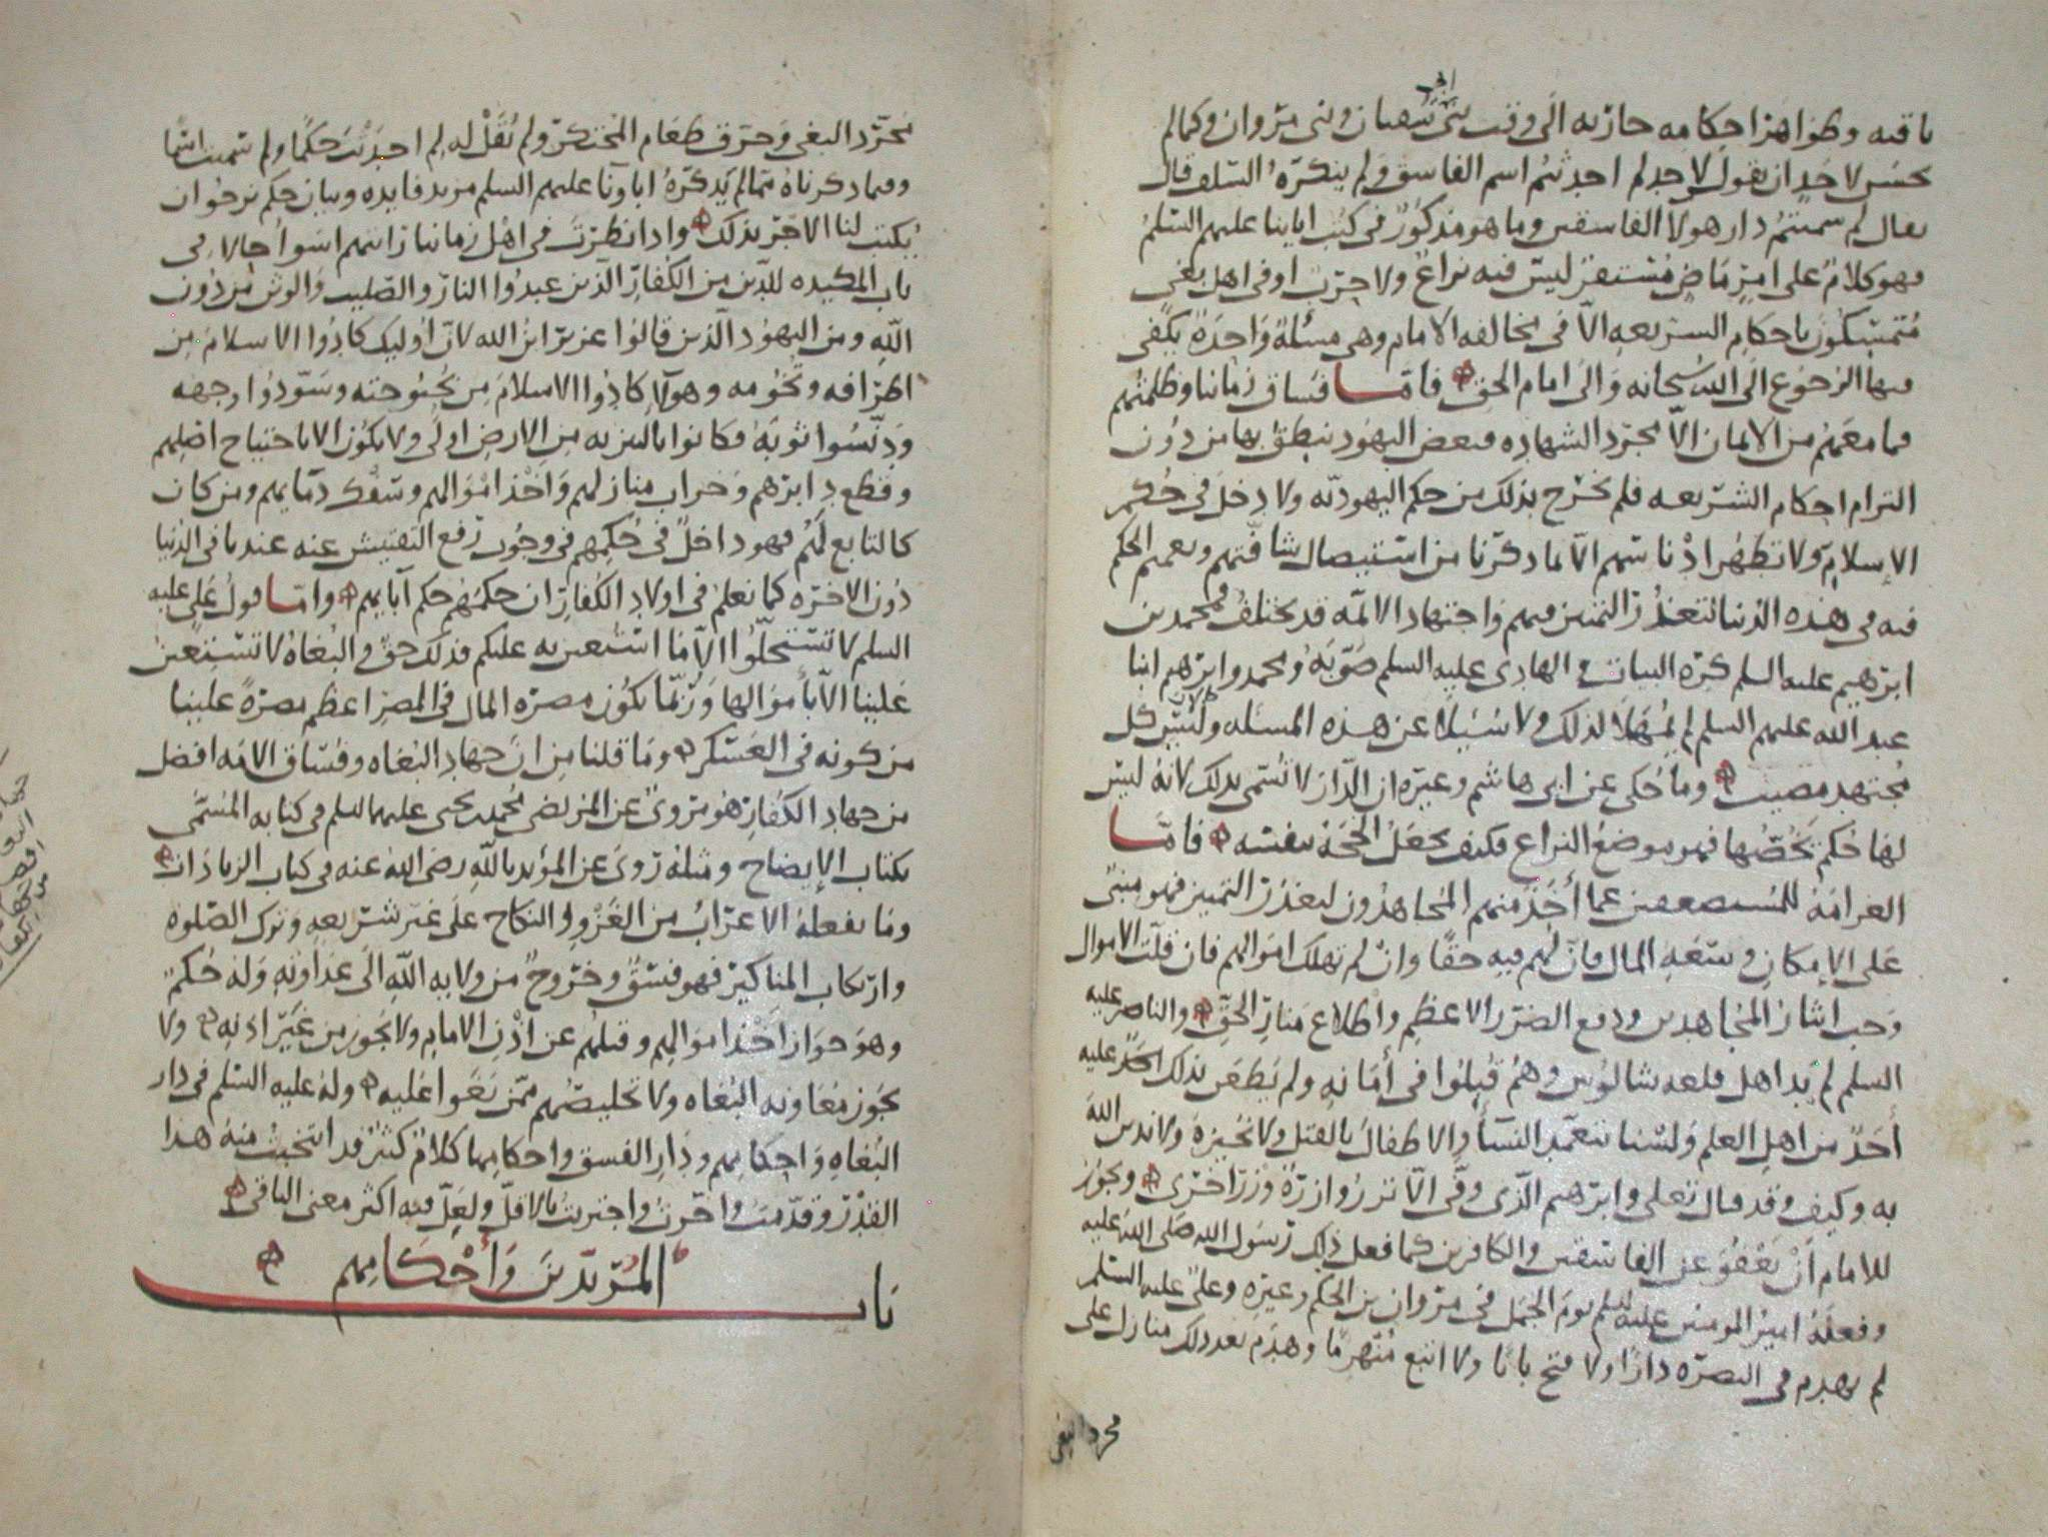 باقيه وظواهرا حكامه جاريه الى وقت بنى سفيان وبنى مروان وكما لم
يحسن لاحد ان يقول لاحد لم احدثتم اسم الفاسق ولم ينكره السلف قال
يقال لم سميتم دار هولا الفاسقين وما هو مذكور فى كتب اباينا عليهم السلم
فهو كلام على امر ماض مستقر ليس فيه نزاع ولا حرب او فى اهل بغى
متمسكون باحكام الشريعه الا فى مخالفه الامام وهى مسئلة واحدة يكفى
فيها الرجوع الى الله سبحانه والى امام الحق فاما فساق زماننا وظلمتهم
فما معهم من الايمان الا مجرد الشهاده فبعض اليهود ينطق بها من دون
التزام احكام الشريعه فلم يخرج بذلك من حكم اليهوديه ولا دخل فى حكم
الاسلام ولا تطهر ادناسهم الا بما ذكرنا من استيصال شافتهم ويعمهم الحكم
فيه فى هذه الدنيا لتعذر التمييز فيهم واجتهاد الائمه قد يختلف فمحمد بن
ابرهيم عليه السلم كره البيات والهادى عليه السلم صوبه ومحمد وابرهيم ابنا
عبد الله عليهم السلم لم يمهلا لذلك ولا سيلا عن هذه المسئله ولان كل
مجتهد مصيب وما حكى عن ابى هاشم وغيره ان الدار لا تسمى بذلك لانه ليس
لها حكم يخصها فهو موضع النزاع فكيف يجعل الحجة بنفسه فاما
الغرامة للمستضعفين عما أخذ منهم المجاهدون لتعذر التمييز فهو مبنى
على الامكان وسعه المال فان لهم فيه حقا وان لم تهلك اموالهم فان قلت الاموال
وجب ايثار المجاهدين ودفع الضرر الاعظم واطلاع منار الحق والناصر عليه
السلم لم يد اهل قلعه شالوس وهم قتلوا فى أمانه ولم يطعن بذلك احد عليه
أحد من اهل العلم ولسنا نتعمد النسأ والاطفال بالقتل ولا نجيزه ولا ندين الله
به وكيف وقد قال تعلى وابرهيم الذى وفى الا تزر وازرة وزر اخرى ويجوز
للامام أن يعفو عن الفاسقين والكافرين كما فعل ذلك رسول الله صلى الله عليه
وفعله امير المومنين عليه السلم يوم الجمل فى مروان بن الحكم وغيره وعلى عليه السلم
لم يهدم فى البصره دارا ولا فتح بابا ولا اتبع منهزما وهدم بعد ذلك منازل على
مجرد البغى
مجرد البغى وحرق طعام المحتكر ولم نقل له لم احدثت حكما ولم سميت اسما
وفيما ذكرناه مما لم يذكره اباونا عليهم السلم مزيد فايده وبيان حكم نرجوا ان
يكتب لنا الاجر بذلك واذا نظرت فى اهل زماننا رايتهم اسوا حالا فى
باب المكيده للدين من الكفار الذين عبدوا النار والصليب والوثن من دون
الله ومن اليهود الذين قالوا عزير ابن الله لان اوليك كادوا الاسلام من
اطرافه وتخومه وهولا كادوا الاسلام من بحبوحته وسودوا وجهه
ودنسوا ثوبه فكانوا بالتنزيه من الارض اولى ولا يكون الا باجتياح اصلهم
وقطع دابرهم وخراب منازلهم واخذ اموالهم وسفك دمايهم ومن كان
كالتابع لهم فهو داخل فى حكمهم فى وجوب رفع التفتيش عنه عندنا فى الدنيا
دون الاخره كما نعلم فى اولاد الكفار ان حكمهم حكم آبايهم واما قول على عليه
السلم لا تستحلوا الا ما استعين به عليكم فذلك حق والبغاة لا تستعين
علينا الا باموالها وربما يكون مضره المال فى المصر اعظم مضرة علينا
من كونه فى العسكر وما قلنا من ان جهاد البغاه وفساق الامه افضل
من جهاد الكفار هو مروى عن المرتضى محمد بن يحيى عليهما السلم فى كتابه المسمى
بكتاب الايضاح ومثله روى عن المؤيد بالله رضى الله عنه فى كتاب الزيادات
وما يفعله الاعراب من الغزو والنكاح على غير شريعه وترك الصلوه
وارتكاب المناكير فهو فسق وخروج من ولايه الله الى عداوته وله حكم
وهو جواز اخذ اموالهم وقتلهم عن اذن الامام ولا يجوز من غير اذنه ولا
يجوز معاونه البغاه ولا تخليصهم ممن بغوا عليه وله عليه السلم فى دار
البغاه واحكامهم ودار الفسق واحكامها كلام كثير قد انتخبت منه هذا
القدر وقدمت واخرت واجتزيت بالاقل ولعل فيه اكثر معنى الباقى
باب المرتدين وأحكامهم